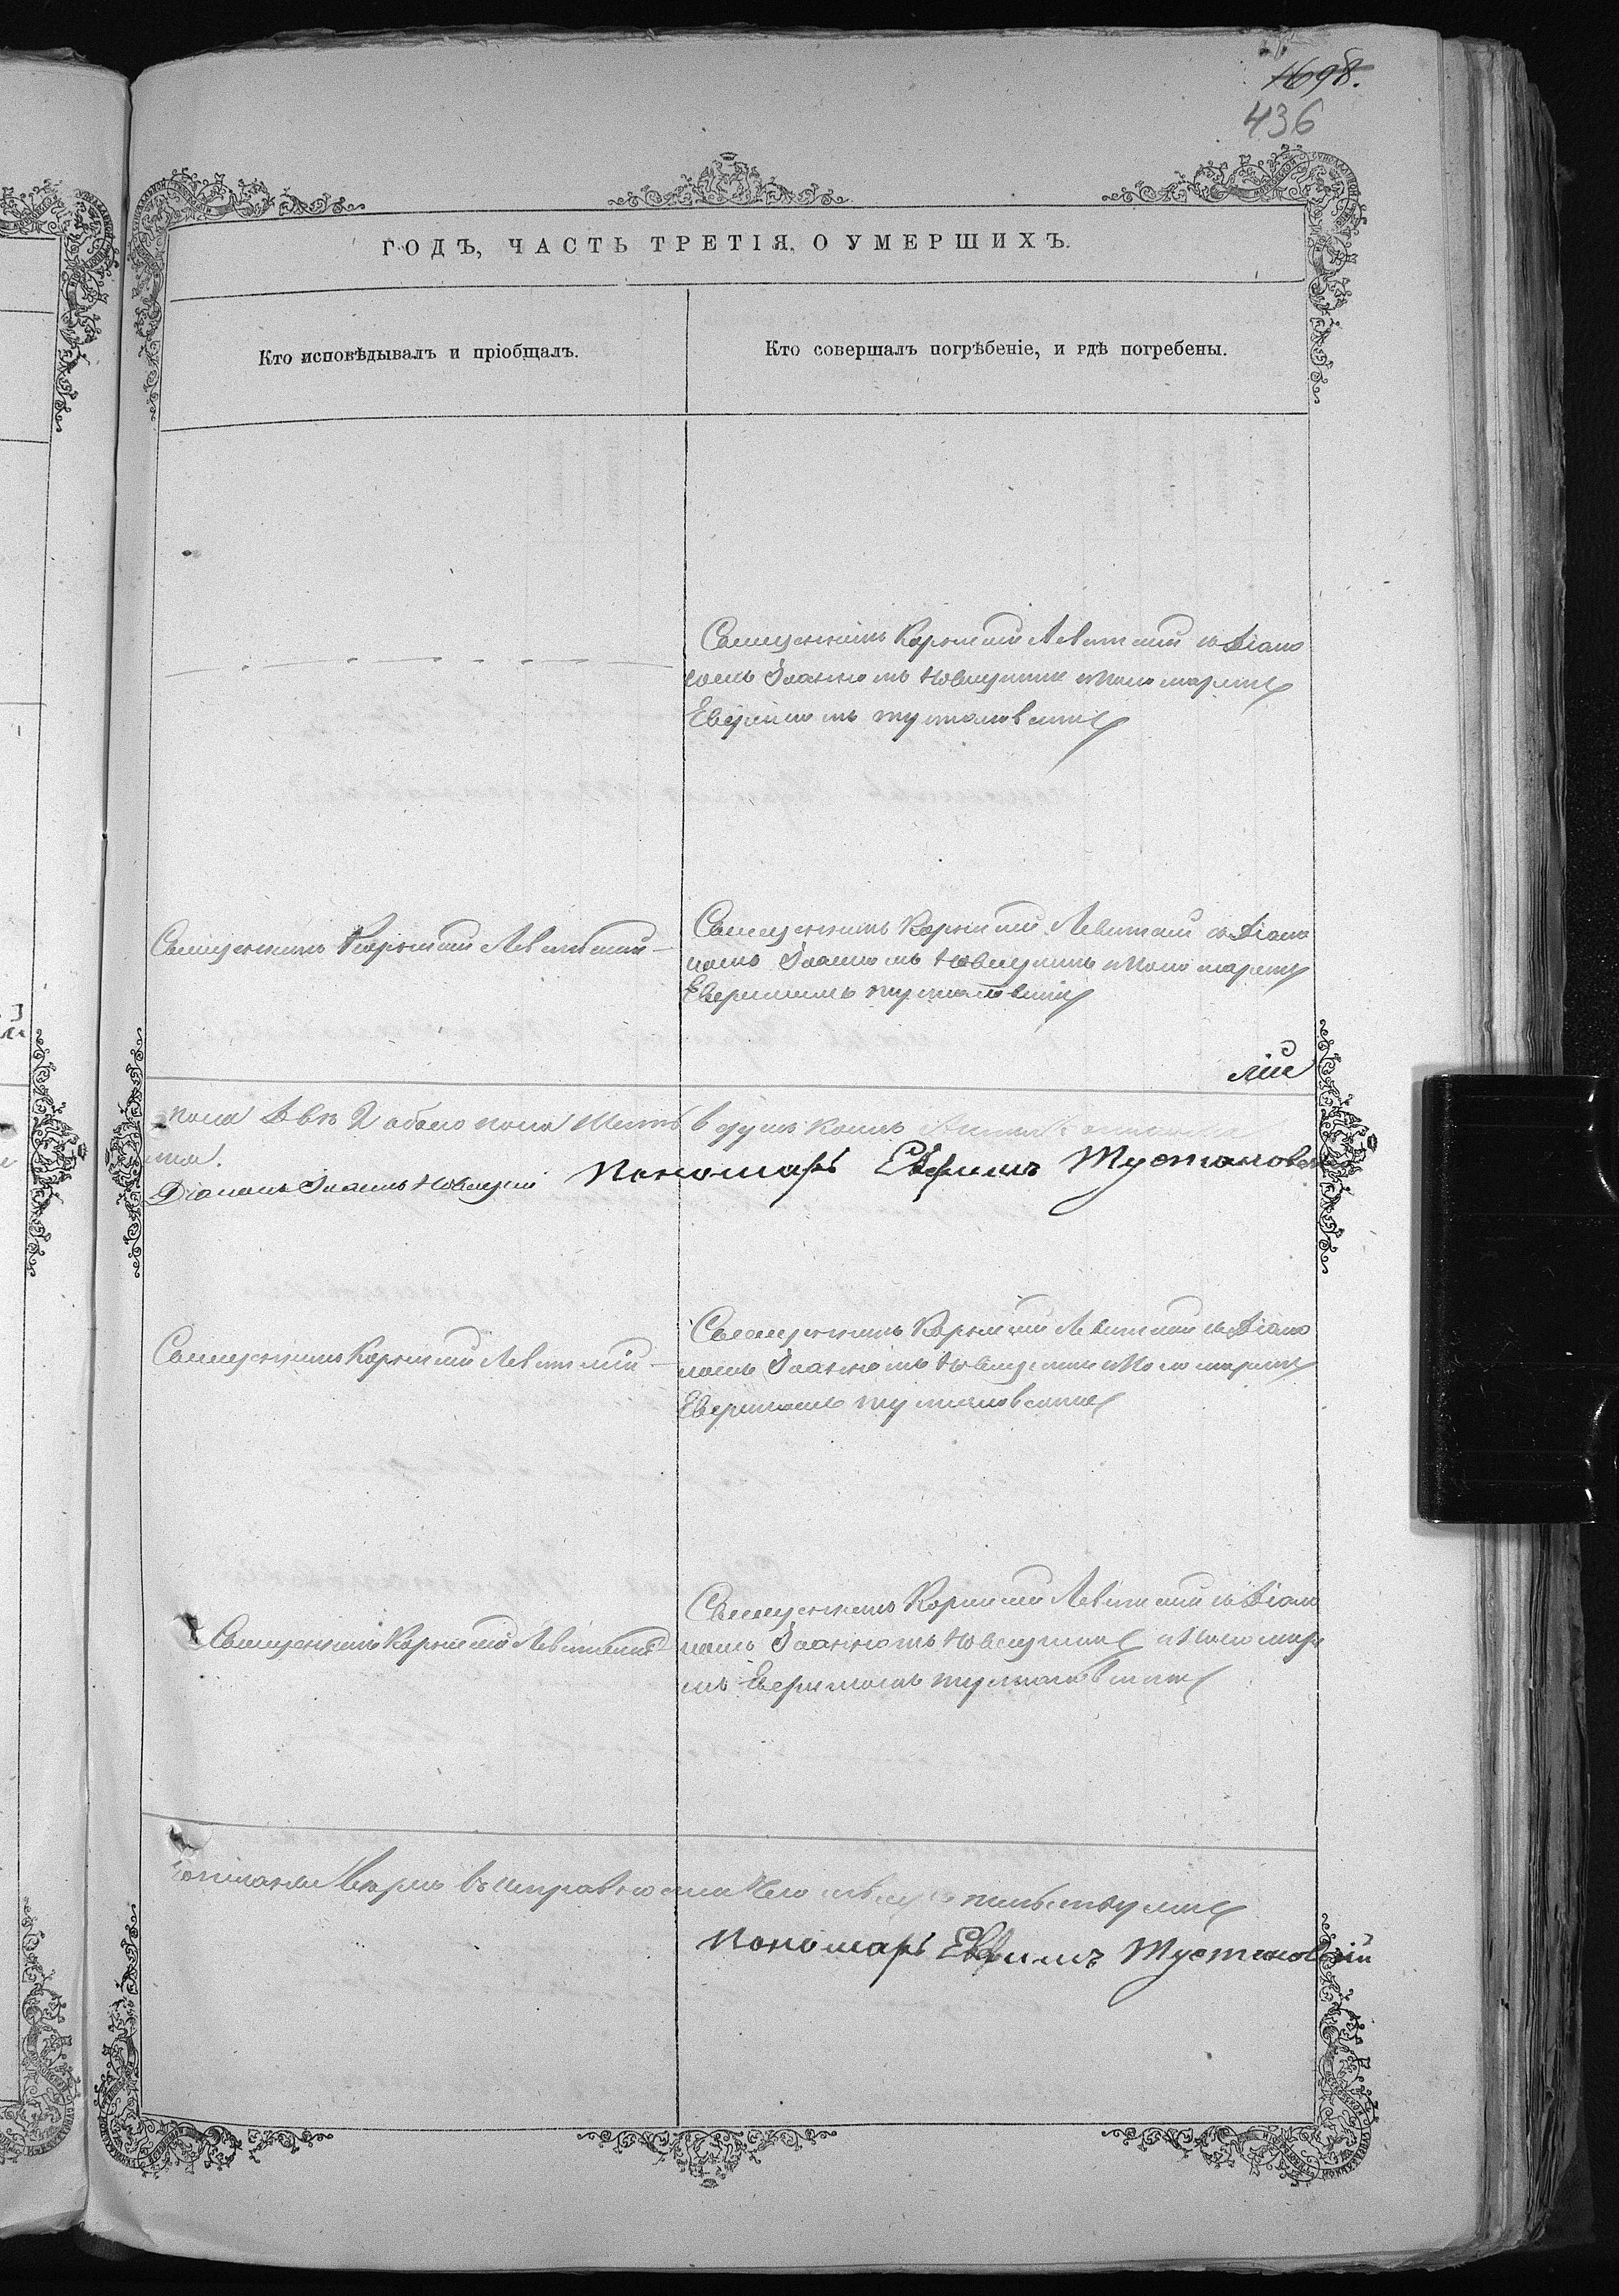 1698.
436
ГОДЪ, ЧАСТЬ ТРЕТІЯ, О УМЕРШИХЪ.
Кто исповѣдывалъ и пріобщалъ.
Кто совершалъ погрѣбеніе, и гдѣ погребены.
Священникъ Корнилій Левитскій съ Діако
номъ Іоанномъ и Пономаремъ
Евфимомъ Тустановскимъ
Священникъ Корнилій Левитскій
Священникъ Корнилій Левитскій съ Діако
номъ Іоанномъ и Пономаремъ
Евфимомъ Тустановскимъ
пола Двѣ 2 обоего пола Шесть 6 душъ
Діаконъ Іоаннъ Пономарь Евфимъ Тустановскій
Священникъ Корнилій Левитскій
Священникъ Корнилій Левитскій съ Діако
номъ Іоанномъ и Пономаремъ
Евфимомъ Тустановскимъ
Священникъ Корнилій Левитскій
Священникъ Корнилій Левитскій съ Діако
номъ Іоанномъ и Пономаре
мъ Евфимомъ Тустановскимъ
въ исправности свидѣтельствуемъ
Пономарь Евфимъ Тустановскій